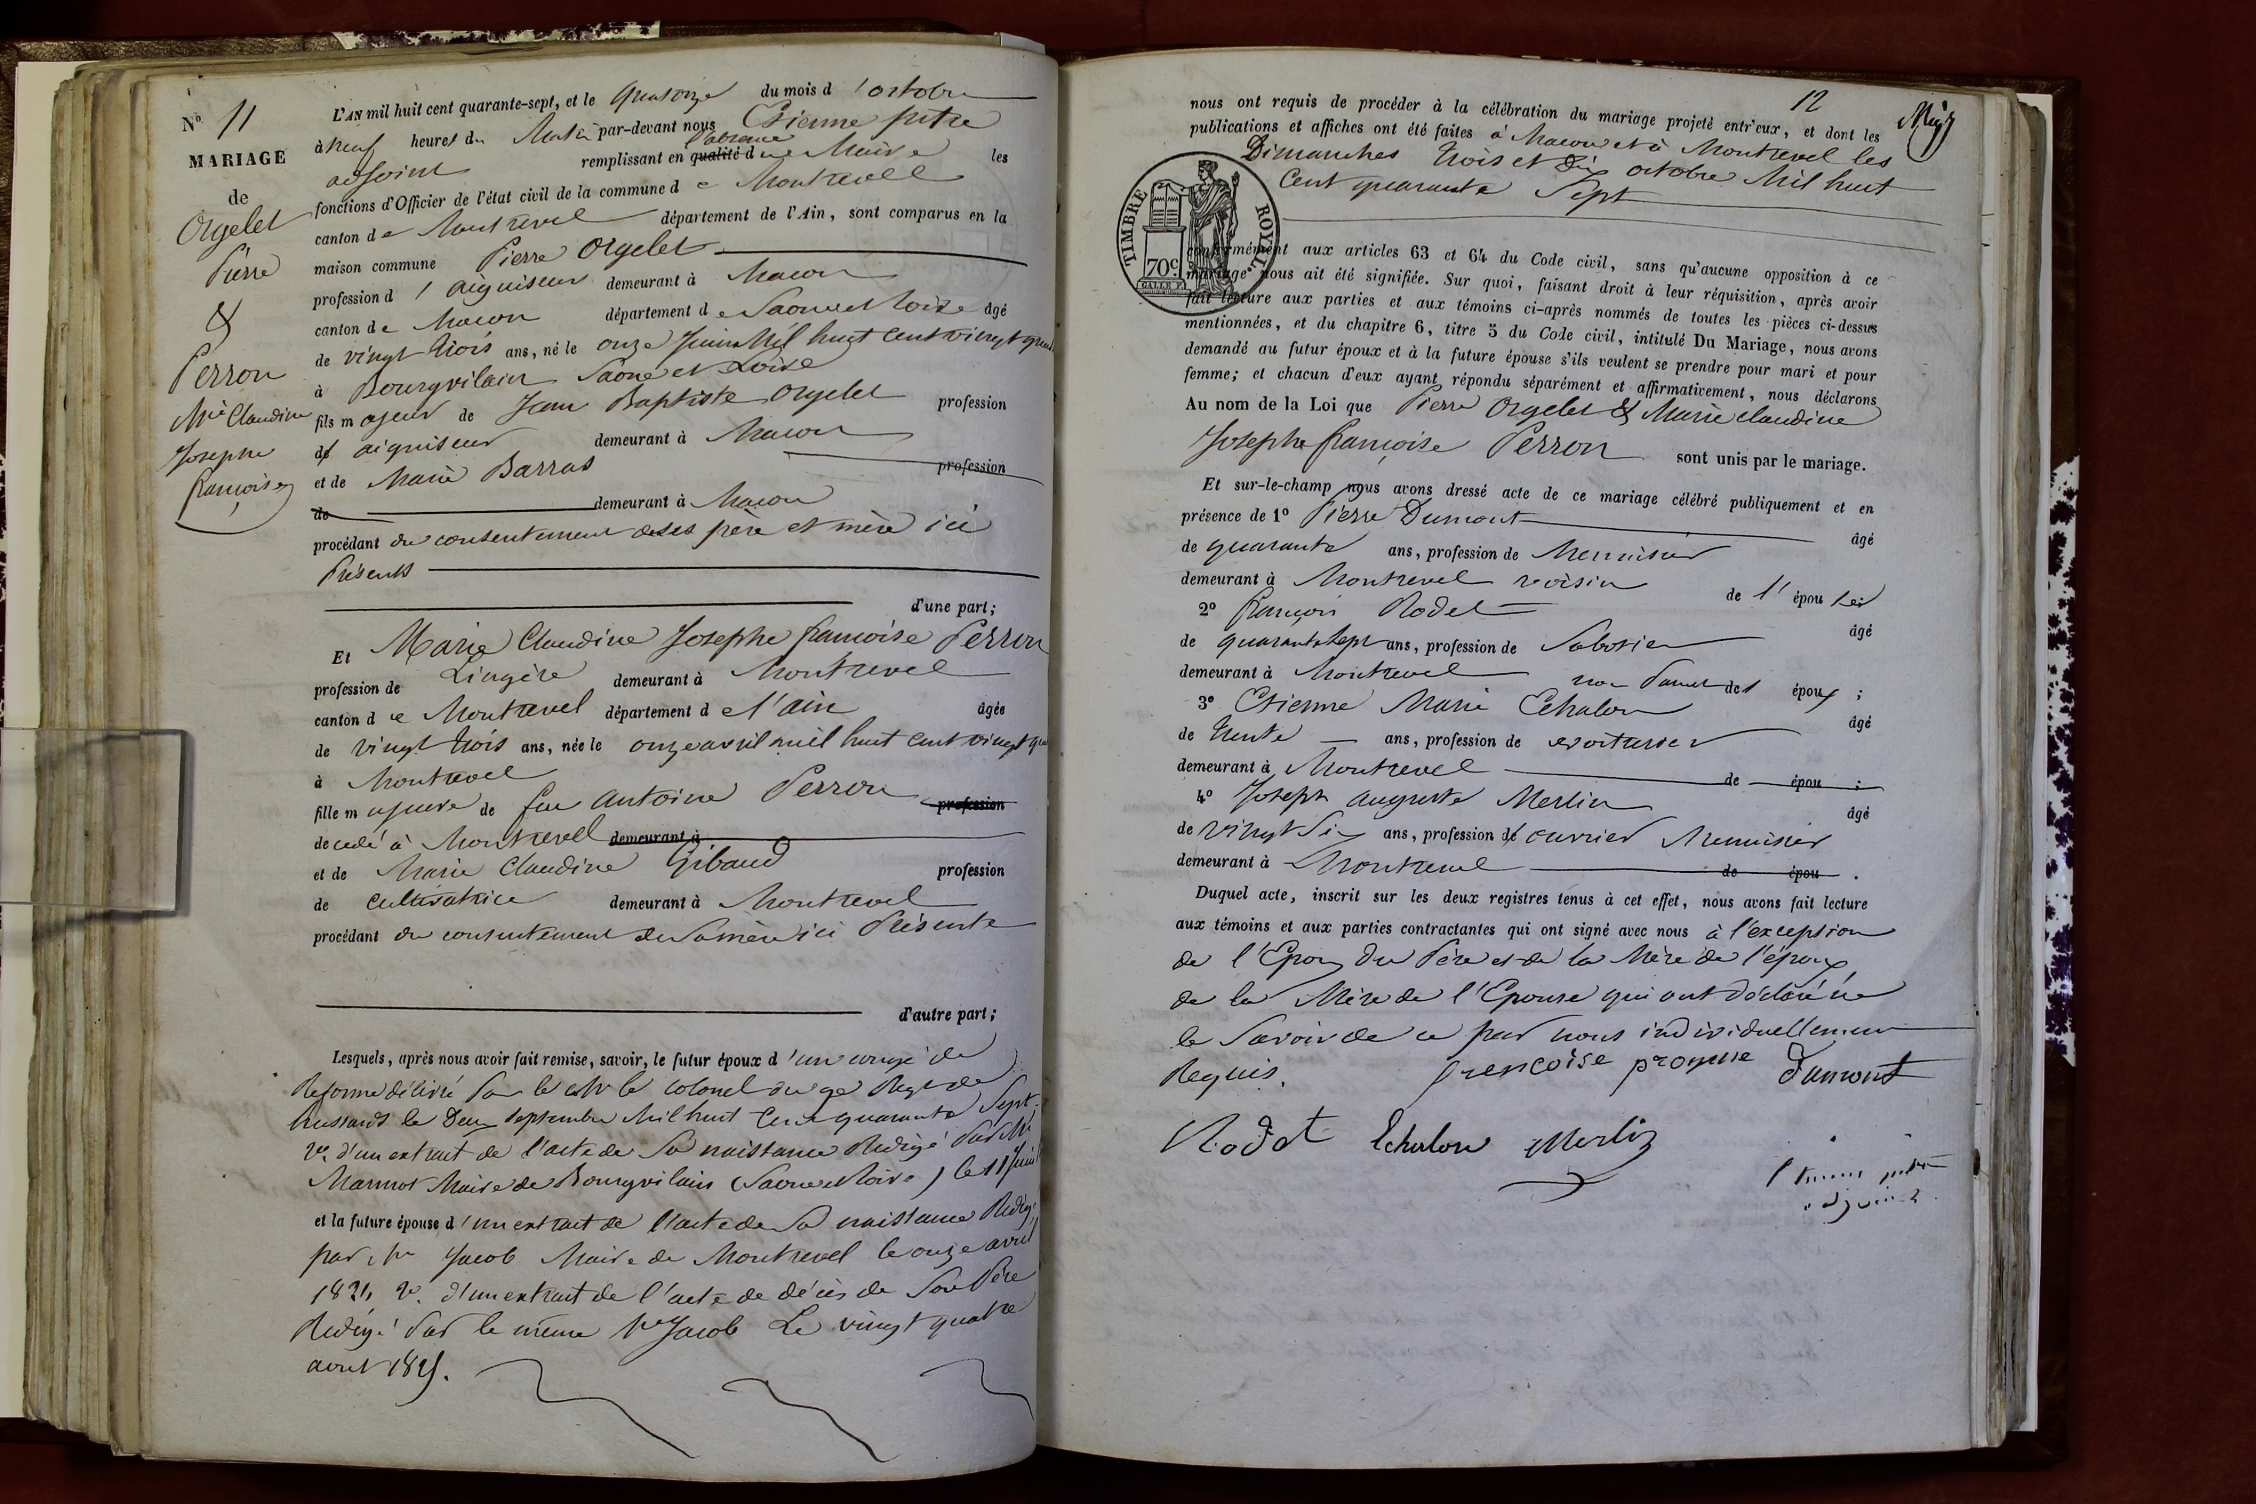 N.º 11
MARIAGE
de
Orgelet
Pierre
&
Perron
Mie Claudine
Josephe
françoise
L'AN mil huit cent quarante-sept, et le quatorze du mois d'octobre
à neuf heures du Matin par-devant nous Etienne pitre
adjoint remplissant en qualité d l'absence de Maire les
fonctions d'Officier de l'état civil de la commune de Montrevel
canton de Montrevel département de l'Ain, sont comparus en la
maison commune Pierre Orgelet
profession d'aiguiseur demeurant à Macon
canton de Macon département de Saone et Loire âgé
de vingt trois ans, né le onze Juin Mil huit cent vingt quatre
à Bourgvilain Saône et Loire
fils majeur de Jean Baptiste Orgelet profession
d' aiguiseur demeurant à Macon
et de Marie Barras profession
de demeurant à Macon
procédant du consentement de ses père et mère ici
Présents
d'une part;
Et Marie Claudine Josephe françoise Perron
profession de Lingère demeurant à Montrevel
canton de Montrevel département de l'ain âgée
de vingt trois ans, née le onze avril mil huit cent vingt qua
à Montrevel
fille majeure de feu Antoine Perron profession
decedé à Montrevel demeurant à
et de Marie Claudine Gibaud profession
de cultivatrice demeurant à Montrevel
procédant du consentement de sa mère ici Présente
d'autre part;
Lesquels, après nous avoir fait remise, savoir, le futur époux d'un congé de
Reforme délivré par le colonel du 9e Regt de
hussards le Deux septembre Mil huit Cent quarante Sept
2º. d'un extrait de l'acte de Sa naissance Redigé par Mr
Marmot Maire de Bourgvilain (Saone et Loire) le 11 Juin
et la future épouse d'un extrait de l'acte de Sa naissance Redigé
par Mr Jacob Maire de Montrevel le onze avril
1824 2º. d'un extrait de l'acte de décès de Son Père
Redigé Par le même Mr Jacob Le vingt quatre
aout 1825.
12
nous ont requis de procéder à la célébration du mariage projeté entr'eux, et dont les
publications et affiches ont été faites à Macon et à Montrevel les
Dimanches trois et Dix octobre Mil huit
Cent quarante Sept
TIMBRE ROYAL.
70c.
conformément aux articles 63 et 64 du Code civil, sans qu'aucune opposition à ce
mariage nous ait été signifiée. Sur quoi, faisant droit à leur réquisition, après avoir
fait lecture aux parties et aux témoins ci-après nommés de toutes les pièces ci-dessus
mentionnées, et du chapitre 6, titre 5 du Code civil, intitulé Du Mariage, nous avons
demandé au futur époux et à la future épouse s'ils veulent se prendre pour mari et pour
femme; et chacun d'eux ayant répondu séparément et affirmativement, nous déclarons
Au nom de la Loi que Pierre Orgelet & Marie Claudine
Josephe françoise Perron sont unis par le mariage.
Et sur-le-champ nous avons dressé acte de ce mariage célébré publiquement et en
présence de 1º Pierre Dumont âgé
de quarante ans, profession de Menuisier
demeurant à Montrevel voisin de l'épouse
2º françois Rodet âgé
de quarante sept ans, profession de Sabotier
demeurant à Montrevel non Parent des époux;
3º Etienne Marie Echalon âgé
de Trente ans, profession de voiturier
demeurant à Montrevel de épou ;
4º Joseph Auguste Merlin âgé
de vingt Six ans, profession d'ouvrier Menuisier
demeurant à Montrevel de épou .
Duquel acte, inscrit sur les deux registres tenus à cet effet, nous avons fait lecture
aux témoins et aux parties contractantes qui ont signé avec nous à l'exception
de l'Epoux Du Père et de la Mère de l'époux
de la Mère de l'Epouse qui ont déclaré ne
le Savoir de ce par nous individuellement
Requis.
Dumont
Rodet Echalon Merlin